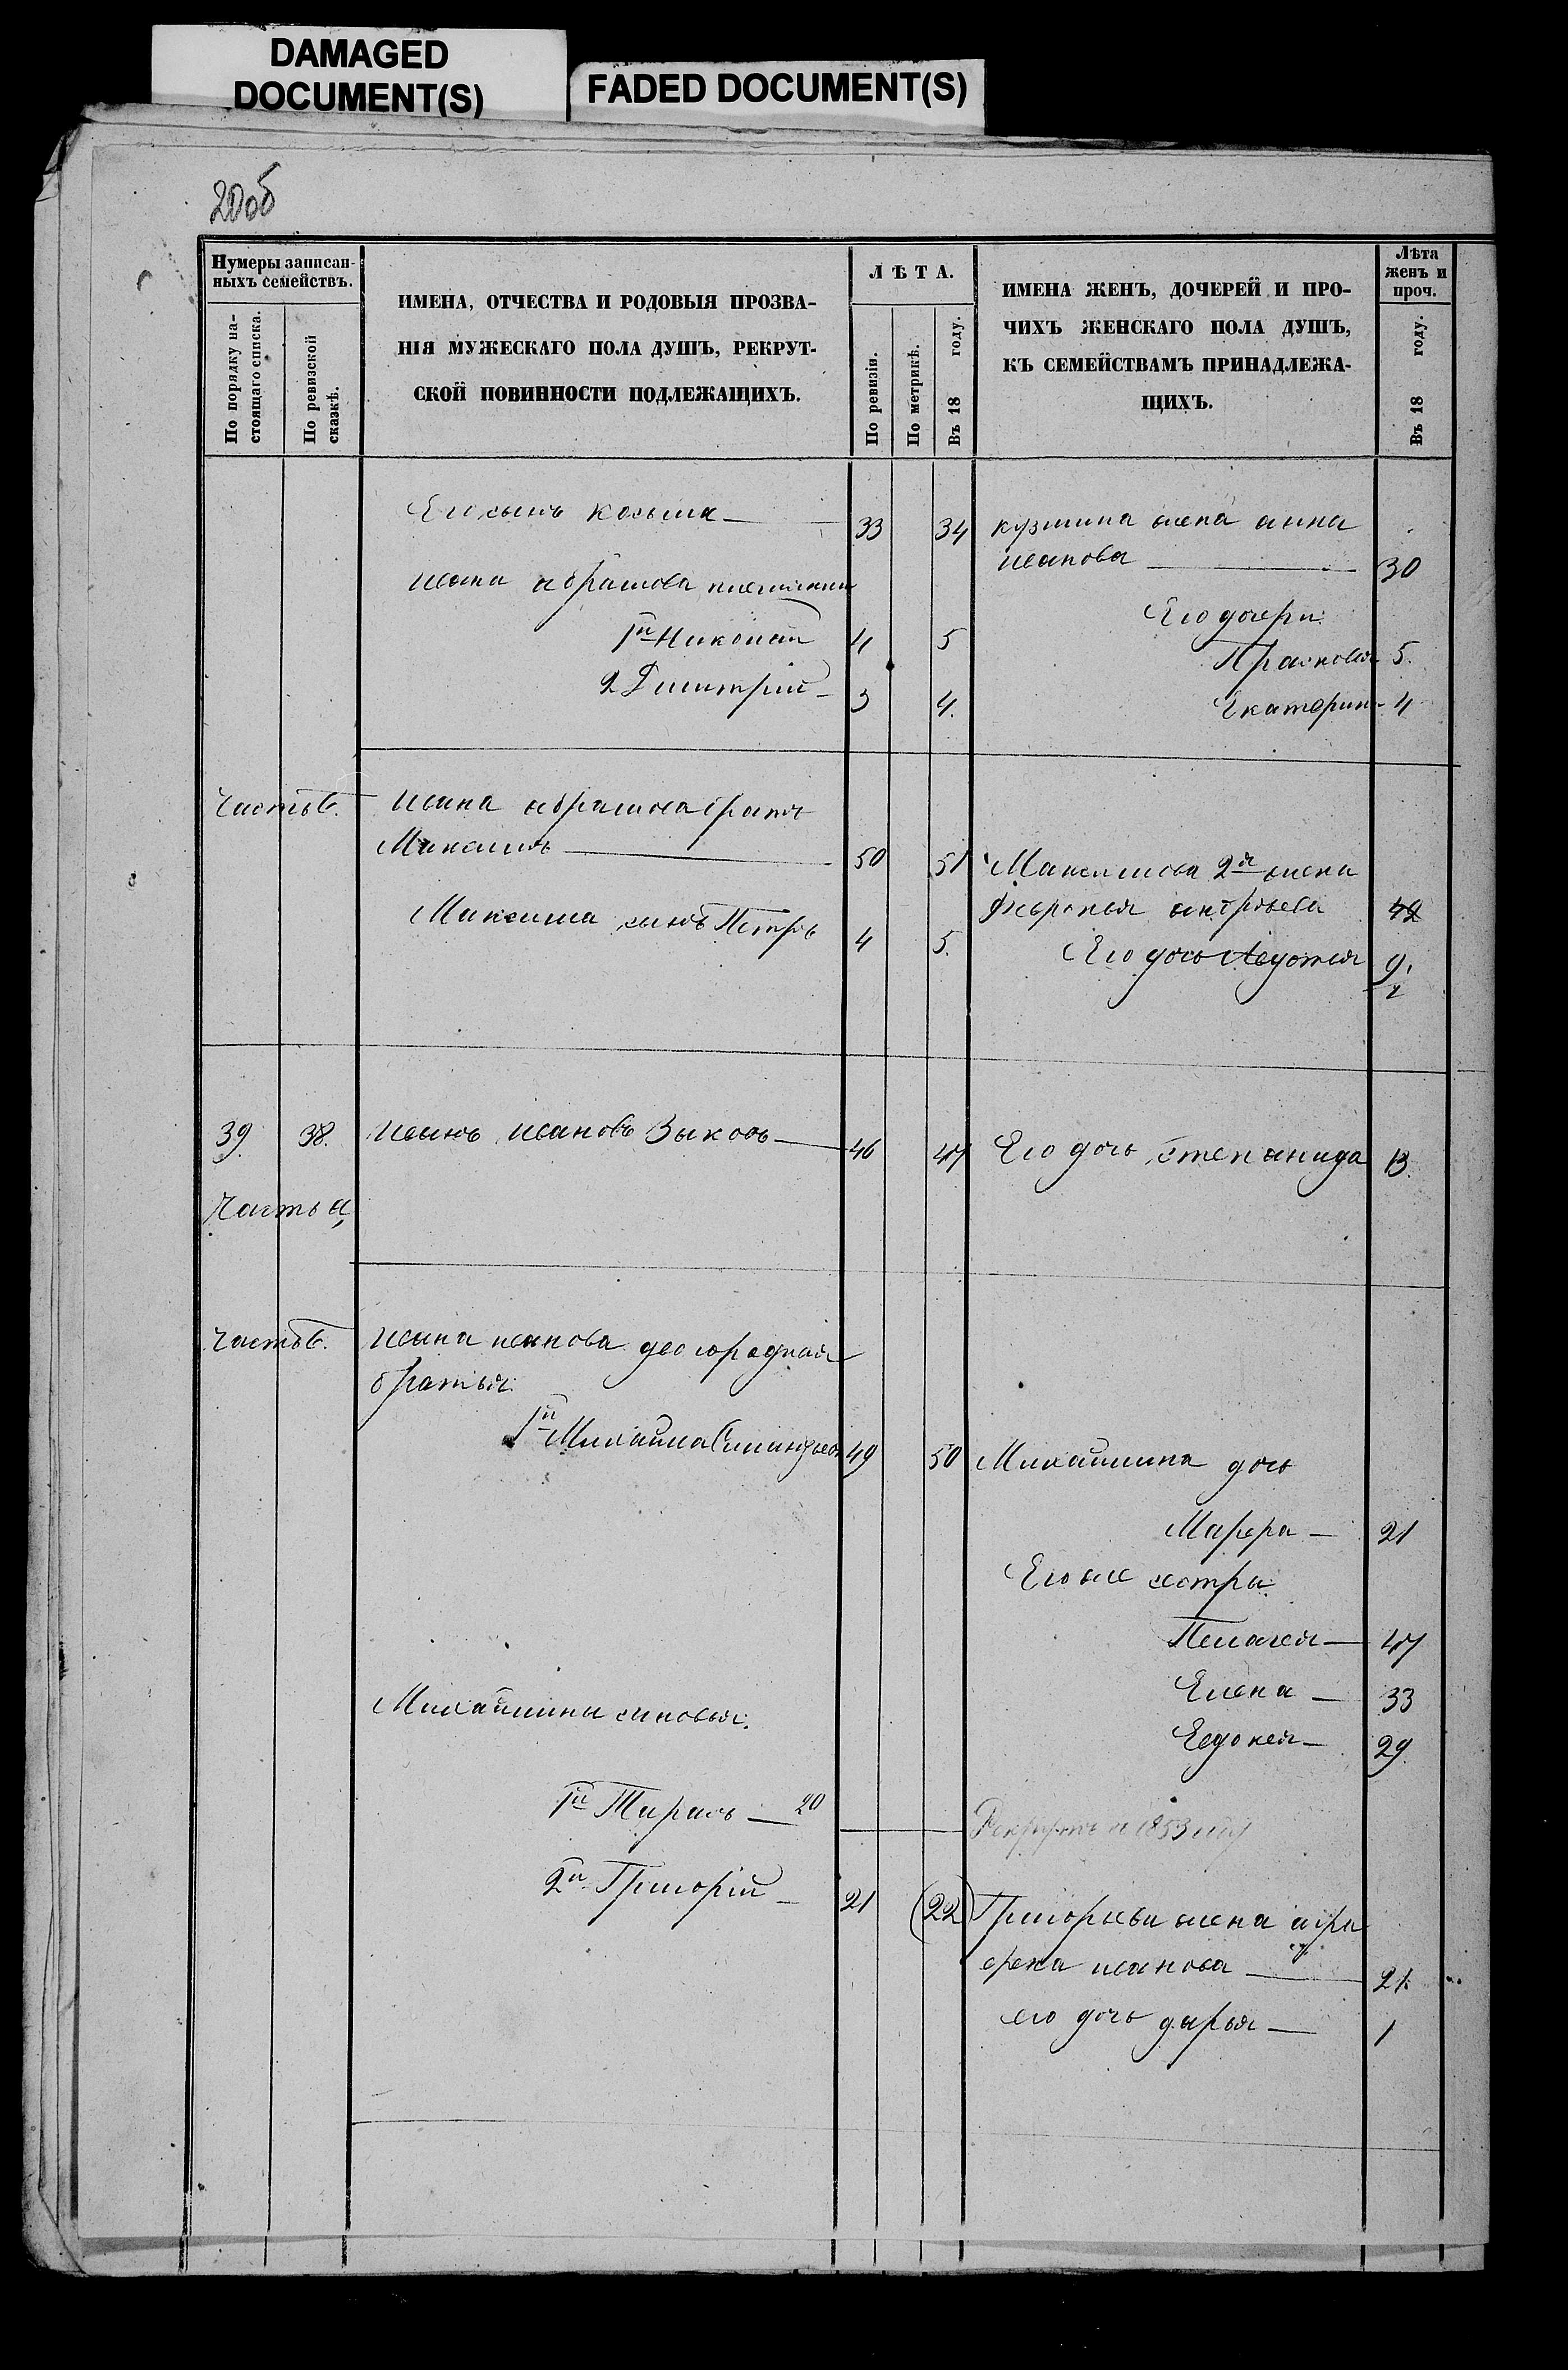 DAMAGED
DOCUMENT(S)
FADED DOCUMENT(S)
20об
Нумеры записан-
ныхъ семействъ.
По порядку на-
стоящаго списка.
По ревизской
сказкѣ.
ИМЕНА, ОТЧЕСТВА И РОДОВЫЯ ПРОЗВА-
НІЯ МУЖЕСКАГО ПОЛА ДУШЪ, РЕКРУТ-
СКОЙ ПОВИННОСТИ ПОДЛЕЖАЩИХЪ.
ЛѢТА.
По ревизіи.
По метрикѣ.
Въ 18 году.
ИМЕНА ЖЕНЪ, ДОЧЕРЕЙ И ПРО-
ЧИХЪ ЖЕНСКАГО ПОЛА ДУШЪ,
КЪ СЕМЕЙСТВАМЪ ПРИНАДЛЕЖА-
ЩИХЪ.
Лѣта
женъ и
проч.
Въ 18 году.
Его сынъ Косьма 33 34 кузмина жена анна
иванова 30
Ивана абрамова племянни
Его дочери:
1й Николай 4 5
Прасковья 5.
2 Димитрій 3 4.
Екатерин 4
Часть б. Ивана абрамова братъ
Максимъ 50 51 Максимова 2я жена
42
Максима сынъ Петръ 4 5.
Его дочь Авдотья 9
39 38. Иванъ Ивановъ Зыковъ 46 47 Его дочь степанида 13.
Часть а,
Часть б. Ивана иванова двоюродныя
братья:
1й Михайла 49 50 Михайлина дочь
Марфа 21
Его же сестры:
Пелагея 47
Елена 33
Михайлины сыновья:
Евдокея 29.
1й Тарасъ 20
Рекрутъ в 1853 году
2й Григорій 21 (22) Григорьева жена агра
фена иванова 21.
его дочь дарья 1